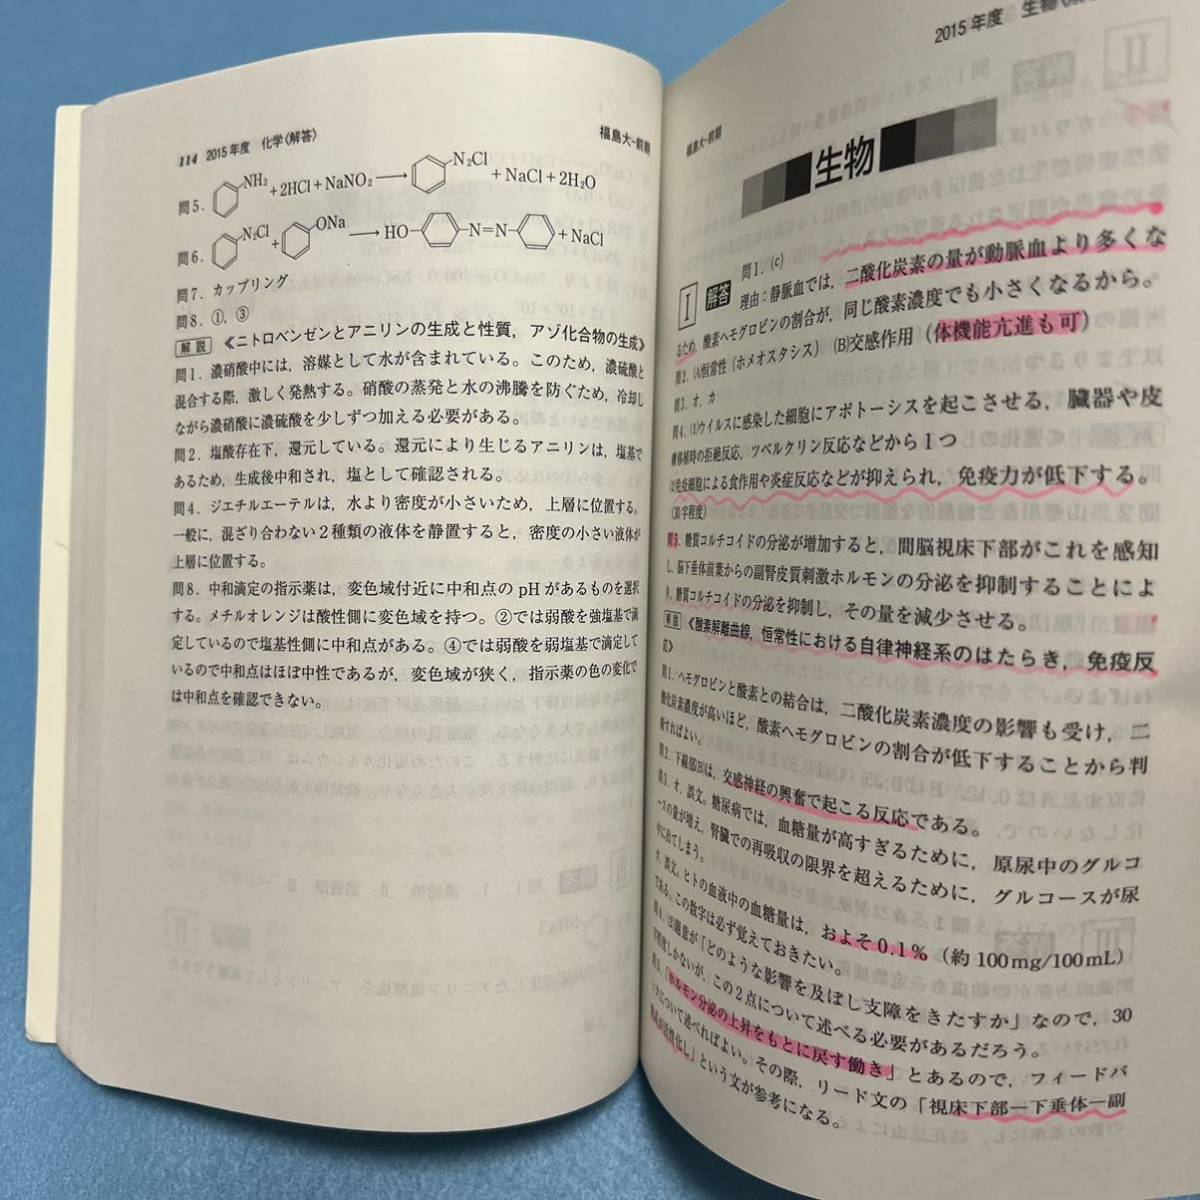 114 2015年度 化学〈解答〉
福島大-前期
問5. NH₂ +2HCl+NaNO₂ → N₂Cl +NaCl+2H₂O
問6. N₂Cl + ONa → HO N=N +NaCl
問7. カップリング
問8. ①, ③
解説 《ニトロベンゼンとアニリンの生成と性質，アゾ化合物の生成》
問1. 濃硝酸中には，溶媒として水が含まれている。このため，濃硫酸と
混合する際，激しく発熱する。硝酸の蒸発と水の沸騰を防ぐため，冷却し
ながら濃硝酸に濃硫酸を少しずつ加える必要がある。
問2. 塩酸存在下，還元している。還元により生じるアニリンは，塩基で
あるため，生成後中和され，塩として確認される。
問4. ジエチルエーテルは，水より密度が小さいため，上層に位置する。
一般に，混ざり合わない2種類の液体を静置すると，密度の小さい液体が
上層に位置する。
問8. 中和滴定の指示薬は，変色域付近に中和点の pH があるものを選択
する。メチルオレンジは酸性側に変色域を持つ。②では弱酸を強塩基で滴
定しているので塩基性側に中和点がある。④では弱酸を弱塩基で滴定して
いるので中和点はほぼ中性であるが，変色域が狭く，指示薬の色の変化で
は中和点を確認できない。
2015年度 生物
福島大-前期
生物
I 解答 問1. (c)
理由：静脈血では，二酸化炭素の量が動脈血より多くな
るため，酸素ヘモグロビンの割合が，同じ酸素濃度でも小さくなるから。
問2. (A)恒常性（ホメオスタシス） (B)交感作用（体機能亢進も可）
問3. オ，カ
問4. (1)ウイルスに感染した細胞にアポトーシスを起こさせる，臓器や皮
膚移植時の拒絶反応，ツベルクリン反応などから1つ
(2)免疫細胞による食作用や炎症反応などが抑えられ，免疫力が低下する。
(30字程度)
問5. 糖質コルチコイドの分泌が増加すると，間脳視床下部がこれを感知
し，脳下垂体前葉からの副腎皮質刺激ホルモンの分泌を抑制することによ
り，糖質コルチコイドの分泌を抑制し，その量を減少させる。
解説 《酸素解離曲線，恒常性における自律神経系のはたらき，免疫反
応》
問1. ヘモグロビンと酸素との結合は，二酸化炭素濃度の影響も受け，二
酸化炭素濃度が高いほど，酸素ヘモグロビンの割合が低下することから判
断すればよい。
問2. 下線部(B)は，交感神経の興奮で起こる反応である。
問3. オ．誤文。糖尿病では，血糖量が高すぎるために，原尿中のグルコ
ースの量が増え，腎臓での再吸収の限界を超えるために，グルコースが尿
中に出てしまう。
カ．誤文。ヒトの血液中の血糖量は，およそ0.1％（約100mg/100mL）
である。この数字は必ず覚えておきたい。
問4. (2)題意が「どのような影響を及ぼし支障をきたすか」なので，30
字程度しかないが，この2点について述べる必要があるだろう。
問5. 「ホルモン分泌の上昇をもとに戻す働き」とあるので，フィードバ
ックについて述べればよい。その際，リード文の「視床下部―下垂体―副
活性化し」という文が参考になる。